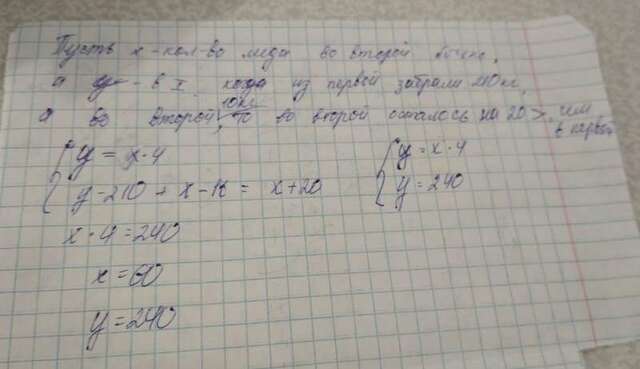 Пусть x - кол-во меда во второй бочке,
а y - в I. когда из первой забрали 210 кг,
а во второй 10 кг, то во второй осталось на 20 > чем в первой
y = x·4
y = x·4
y-210 + x-10 = x+20
y = 240
x·4 = 240
x = 60
y = 240